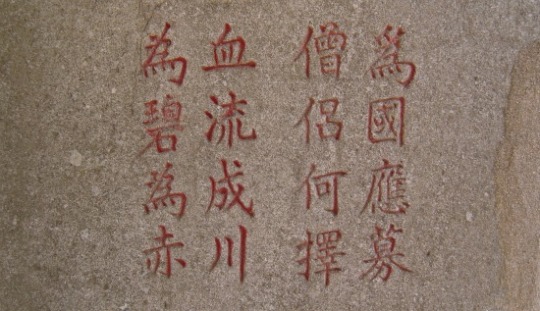 爲國應募
僧侶何擇
血流成川
為碧為赤